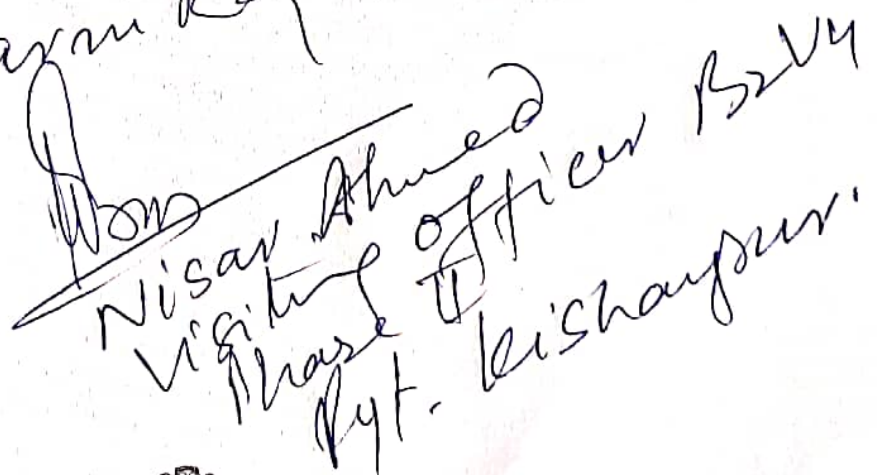 Nisar Ahmed
Visiting Officer B2V4
Phase II
Pyt. Kishanpur.